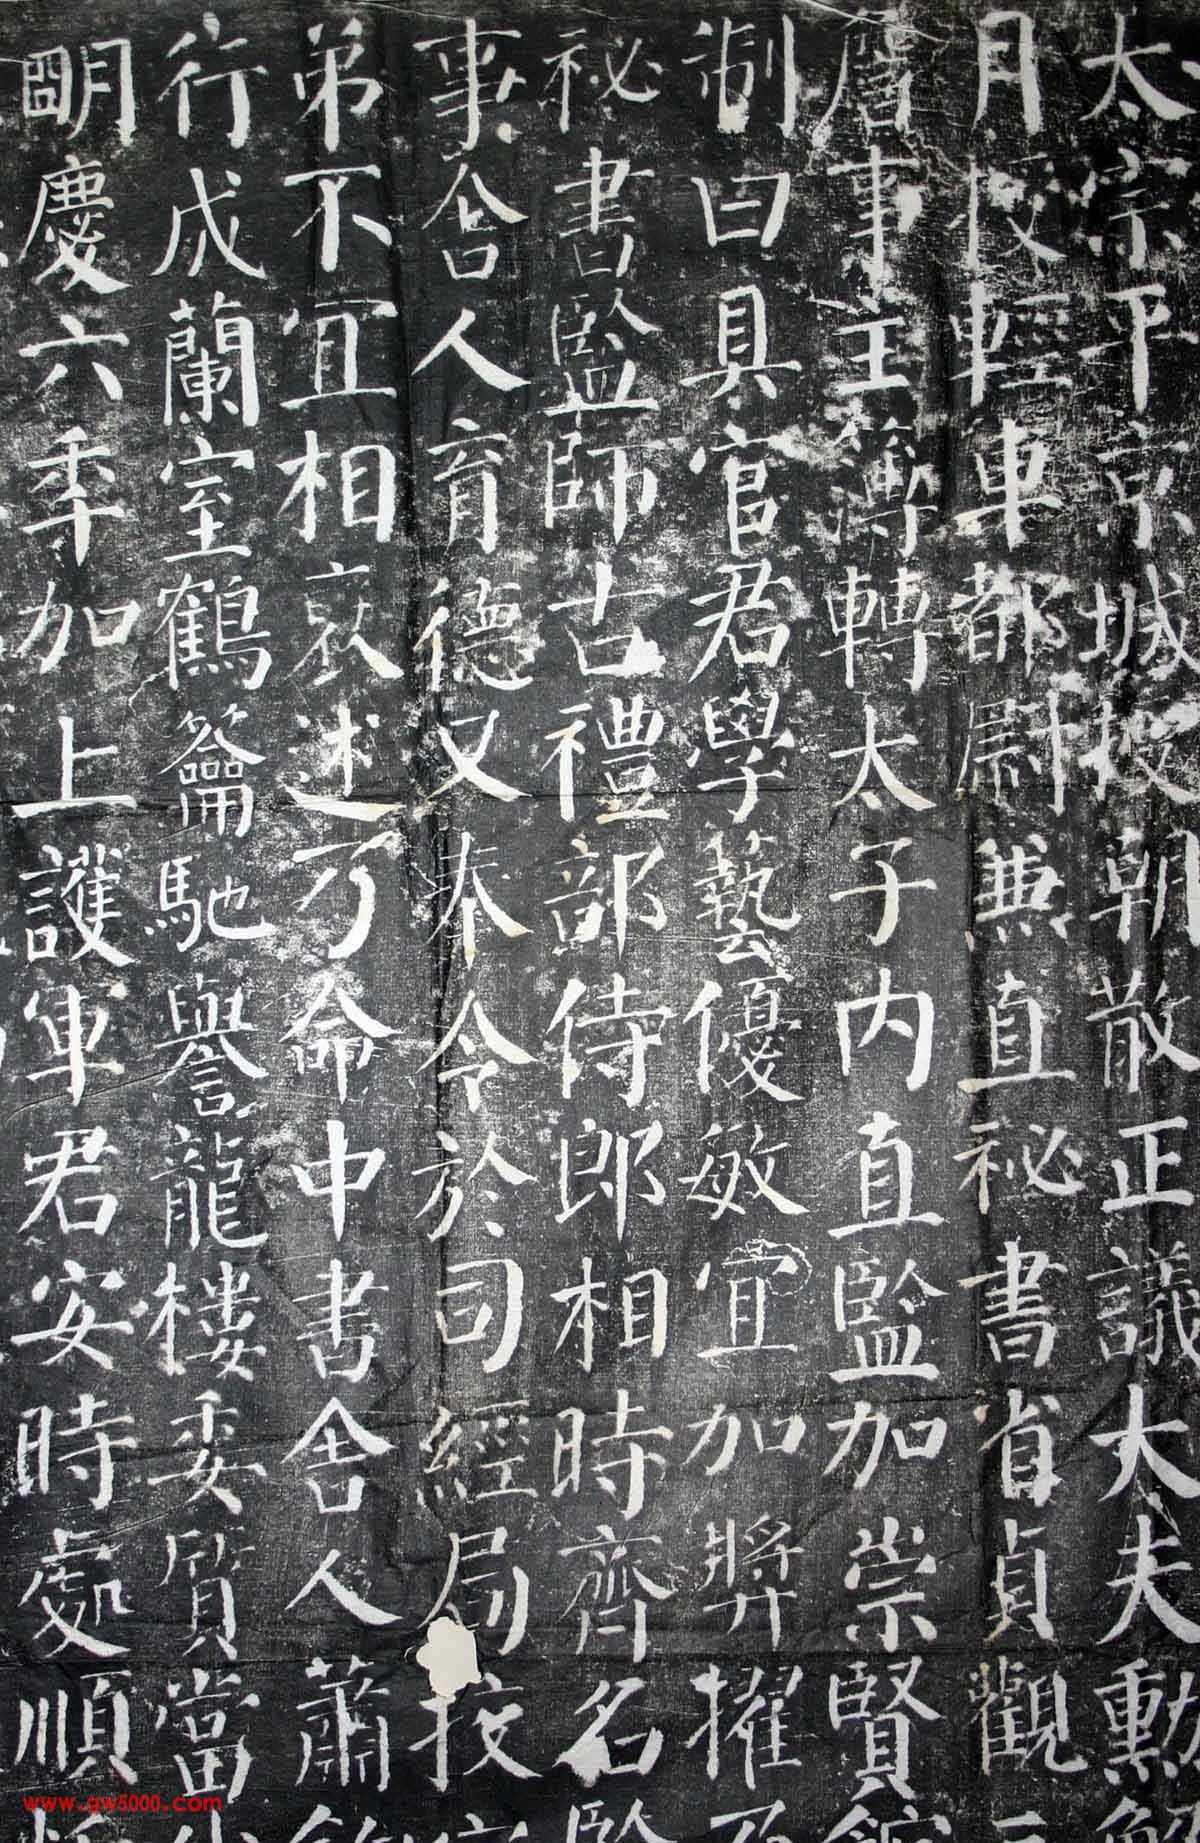 太宗平京城授朝散正議大夫勳解
月授輕車都尉兼直秘書省貞觀三
詹事主簿轉太子內直監加崇賢館
制曰具官君學藝優敏宜加獎擢乃
祕書監師古禮部侍郎相時齊名監
事舍人育德又奉令於司經局校定
弟不宜相褒述乃命中書舍人蕭鈞
行成蘭室鶴籥馳譽龍樓委質當
明慶六年加上護軍君安時處順
www.gw5000.com